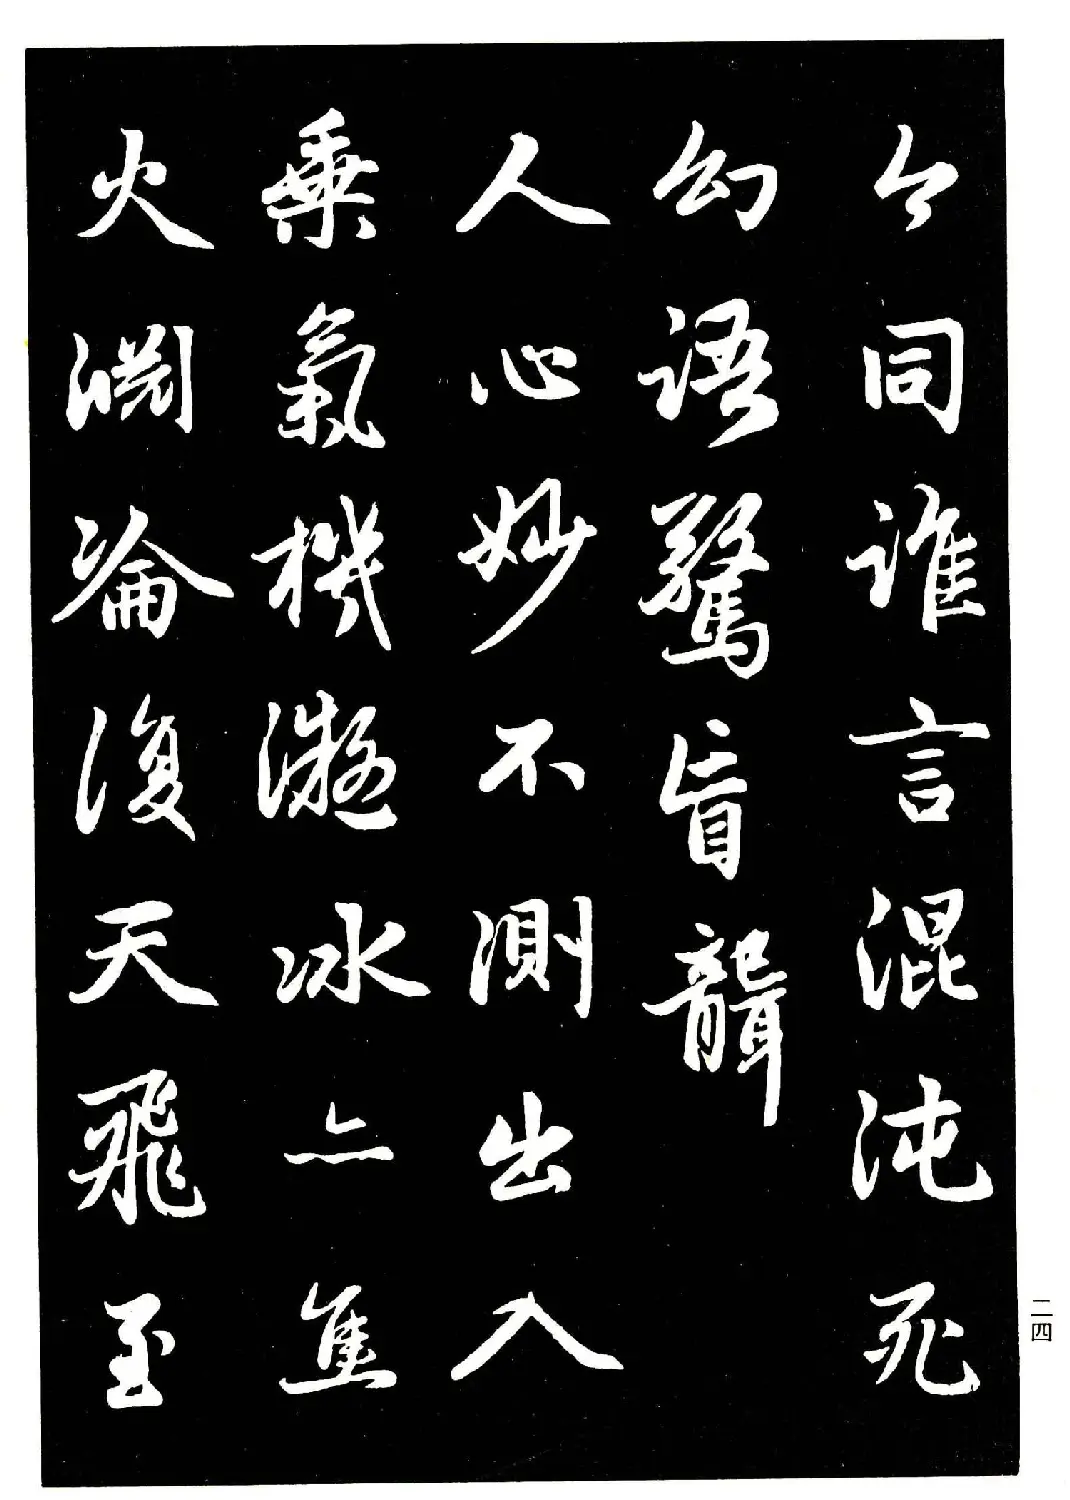 今同誰言混沌死
幻語驚盲聾
人心妙不測出入
乘氣機凝冰亦焦
火淵淪復天飛至
二四